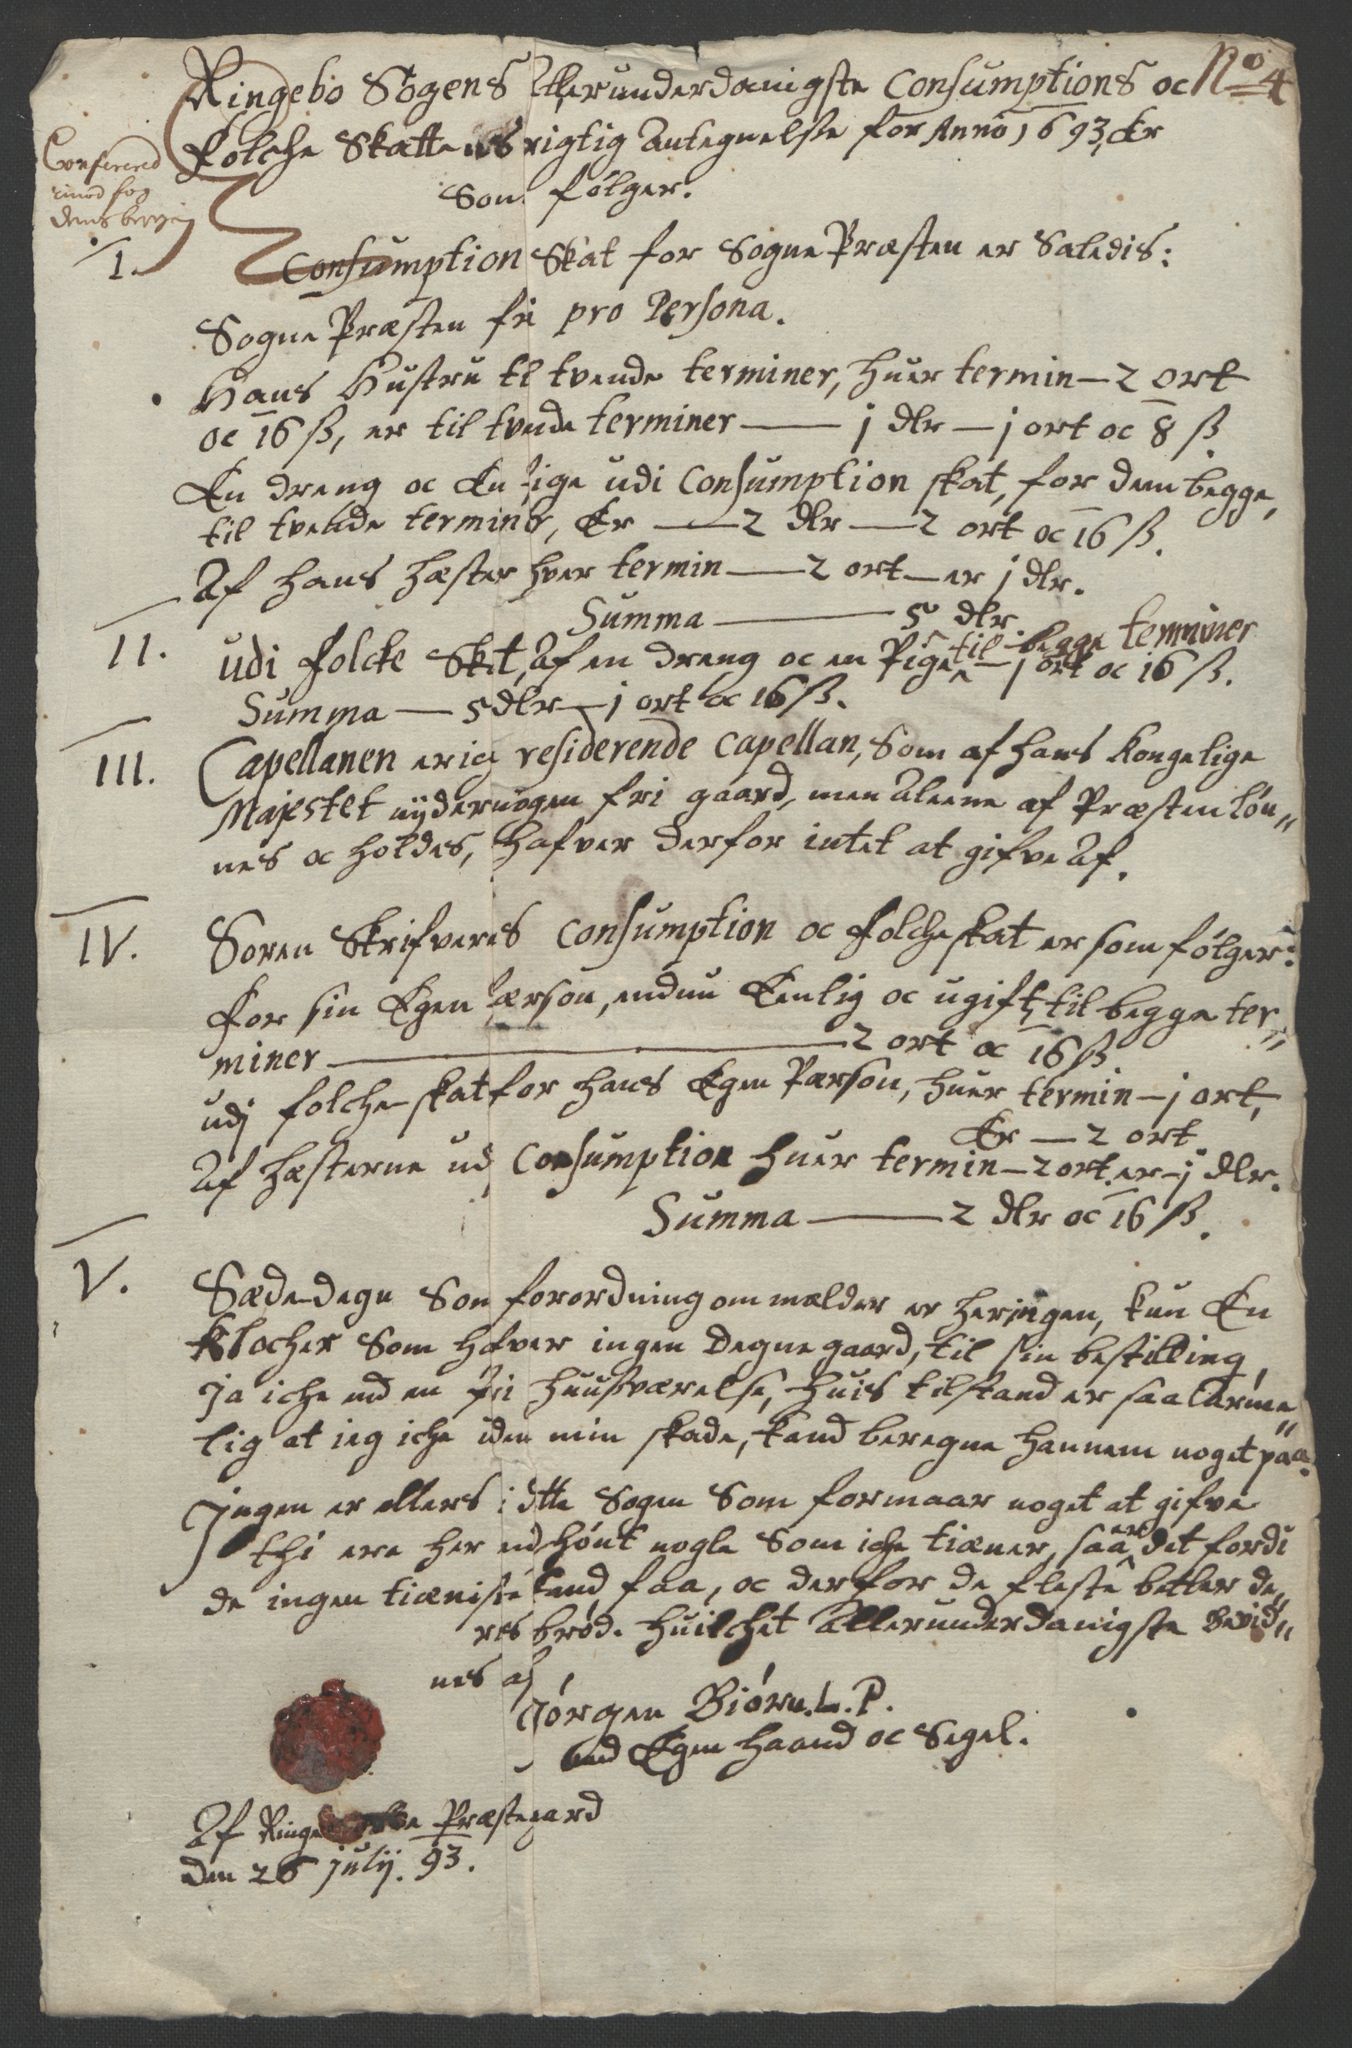 No 4
Ringebo Sogens Allerunderdanigste Consumptions oc
Folche Skattens rigtig Antegnelse for Anno 1693, Er
Som følger.
Confererit
imod fog
dens
I. Consumption Skat for Sogne Præsten er Saledis:
Sogne Præsten fri pro Persona.
Hans Hustru til tvende terminer, huer termin — 2 ort
oc 16 ß, er til tvende terminer — j dlr — j ort oc 8 ß
En dreng oc En Pige udi Consumption skat, for dem begge,
til tvende terminer, Er — 2 dlr — 2 ort oc 16 ß.
Af hans hæster hver termin — 2 ort — er j dlr.
Summa — 5 dlr
II. udi Folcke Skat, Af en dreng oc en Pige til begge terminer — j ort oc 16 ß.
Summa — 5 dlr — j ort oc 16 ß.
III. Capellanen er ig residerende Capellan, Som af hans Kongelige
Majestet nyder nogen fri gaard, men Aleene af Præsten løn„
nes oc holdes, hafver derfor intet at gifve Af.
IV. Soren Skrifveres Consumption oc Folche skat er som følger:
For sin Egen Person, endnu Eenlig oc ugift, til begge ter„
miner — 2 ort oc 16 ß
udj folche-skat for hans Egen Person, huer termin — j ort,
Er — 2 ort
Af hæsterne udj Consumption huer termin — 2 ort er — j dlr.
Summa — 2 dlr oc 16 ß.
V. Sæde-degn Som forordning om mælder er her ingen, kun En
Klocher Som hafver ingen Degne gaard, til sin bestilling,
Ja iche end en fri huusværelse, huis tilstand er saa Larme„
lig at ieg iche uden min skade, kand beregne hannem noget paa.
Ingen er ellers i dtte Sogen Som formaar noget at gifve
thi ere her endskiønt nogle Som iche tiæner, saa er det fordi
de ingen tieniste kand faa, oc derfor de fleste betler de„
res brød. huilchet Allerunderdanigste bevid„
nes af
Jørgen Biørn. L. P.
med Egen haand oc Segel.
Af Præstegaard
den 26 julij. 93.